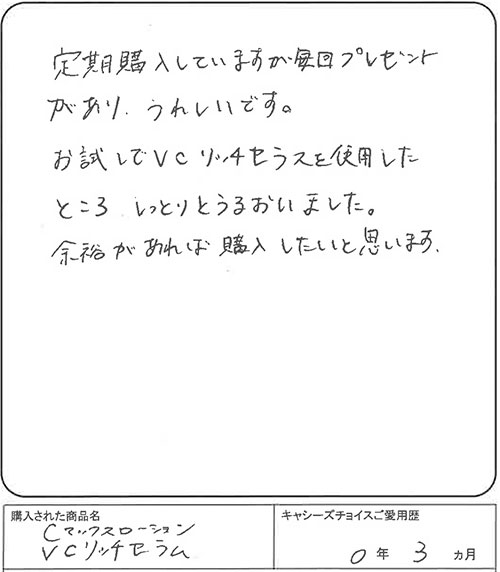 定期購入していますが毎回プレゼント
があり、うれしいです。
お試しでVCリッチセラスを使用した
ところ しっとりとうるおいました。
余裕があれば購入したいと思います.
購入された商品名
Cマックスローション
VCリッチセラム
キャシーズチョイスご愛用歴
0年 3 カ月